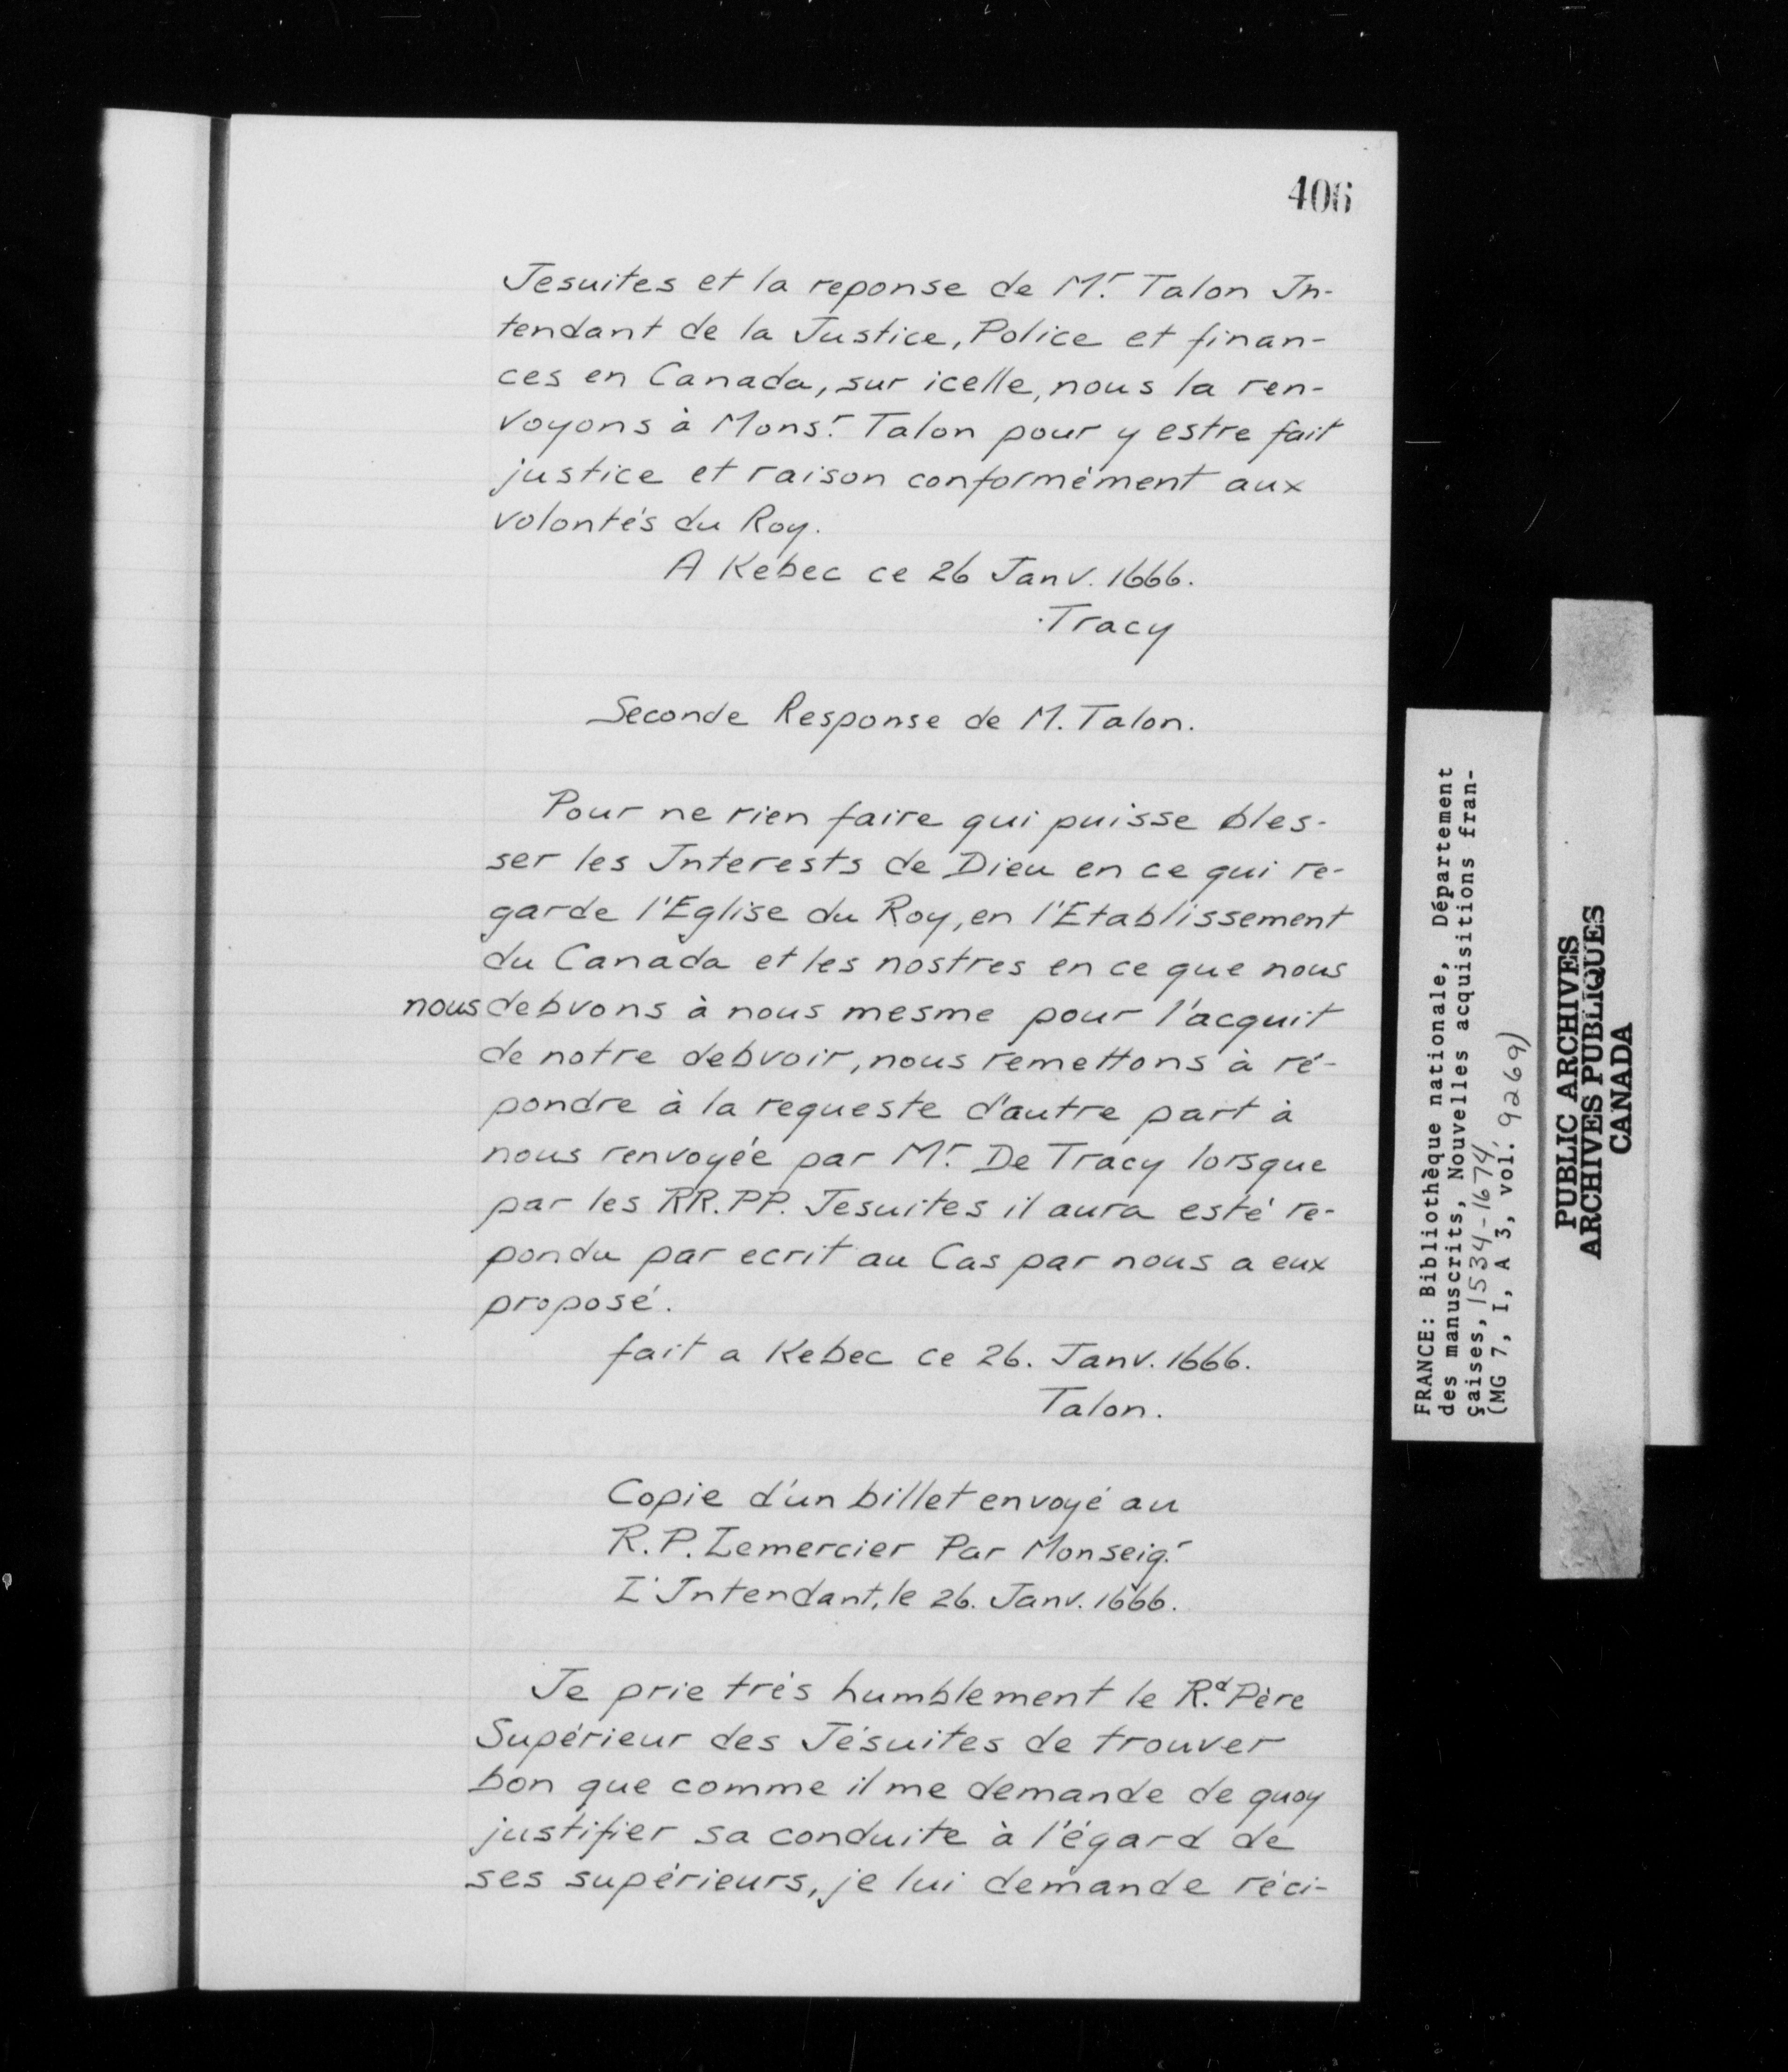 406
Jesuites et la reponse de M.r Talon In-
tendant de la Justice, Police et finan-
ces en Canada, sur icelle, nous la ren-
voyons à Mons.r Talon pour y estre fait
justice et raison conformément aux
volontés du Roy.
A Kebec ce 26 Janv. 1666.
Tracy
Seconde Response de M. Talon.
Pour ne rien faire qui puisse bles-
ser les Interests de Dieu en ce qui re-
garde l'Eglise du Roy, en l'Etablissement
du Canada et les nostres en ce que nous
nous debvons à nous mesme pour l'acquit
de notre debvoir, nous remettons à ré-
pondre à la requeste d'autre part à
nous renvoyée par M.r De Tracy lorsque
par les RR. PP. Jesuites il aura esté re-
pondu par ecrit au Cas par nous a eux
proposé.
fait a Kebec ce 26. Janv. 1666.
Talon.
Copie d'un billet envoyé au
R. P. Lemercier Par Monseig.r
L'Intendant, le 26. Janv. 1666.
Je prie très humblement le R.d Père
Supérieur des Jésuites de trouver
bon que comme il me demande de quoy
justifier sa conduite à l'égard de
ses supérieurs, je lui demande réci-
FRANCE: Bibliothèque nationale, Département
des manuscrits, Nouvelles acquisitions fran-
çaises, 1534-1674
(MG 7, I, A 3, vol. 9269)
PUBLIC ARCHIVES
ARCHIVES PUBLIQUES
CANADA